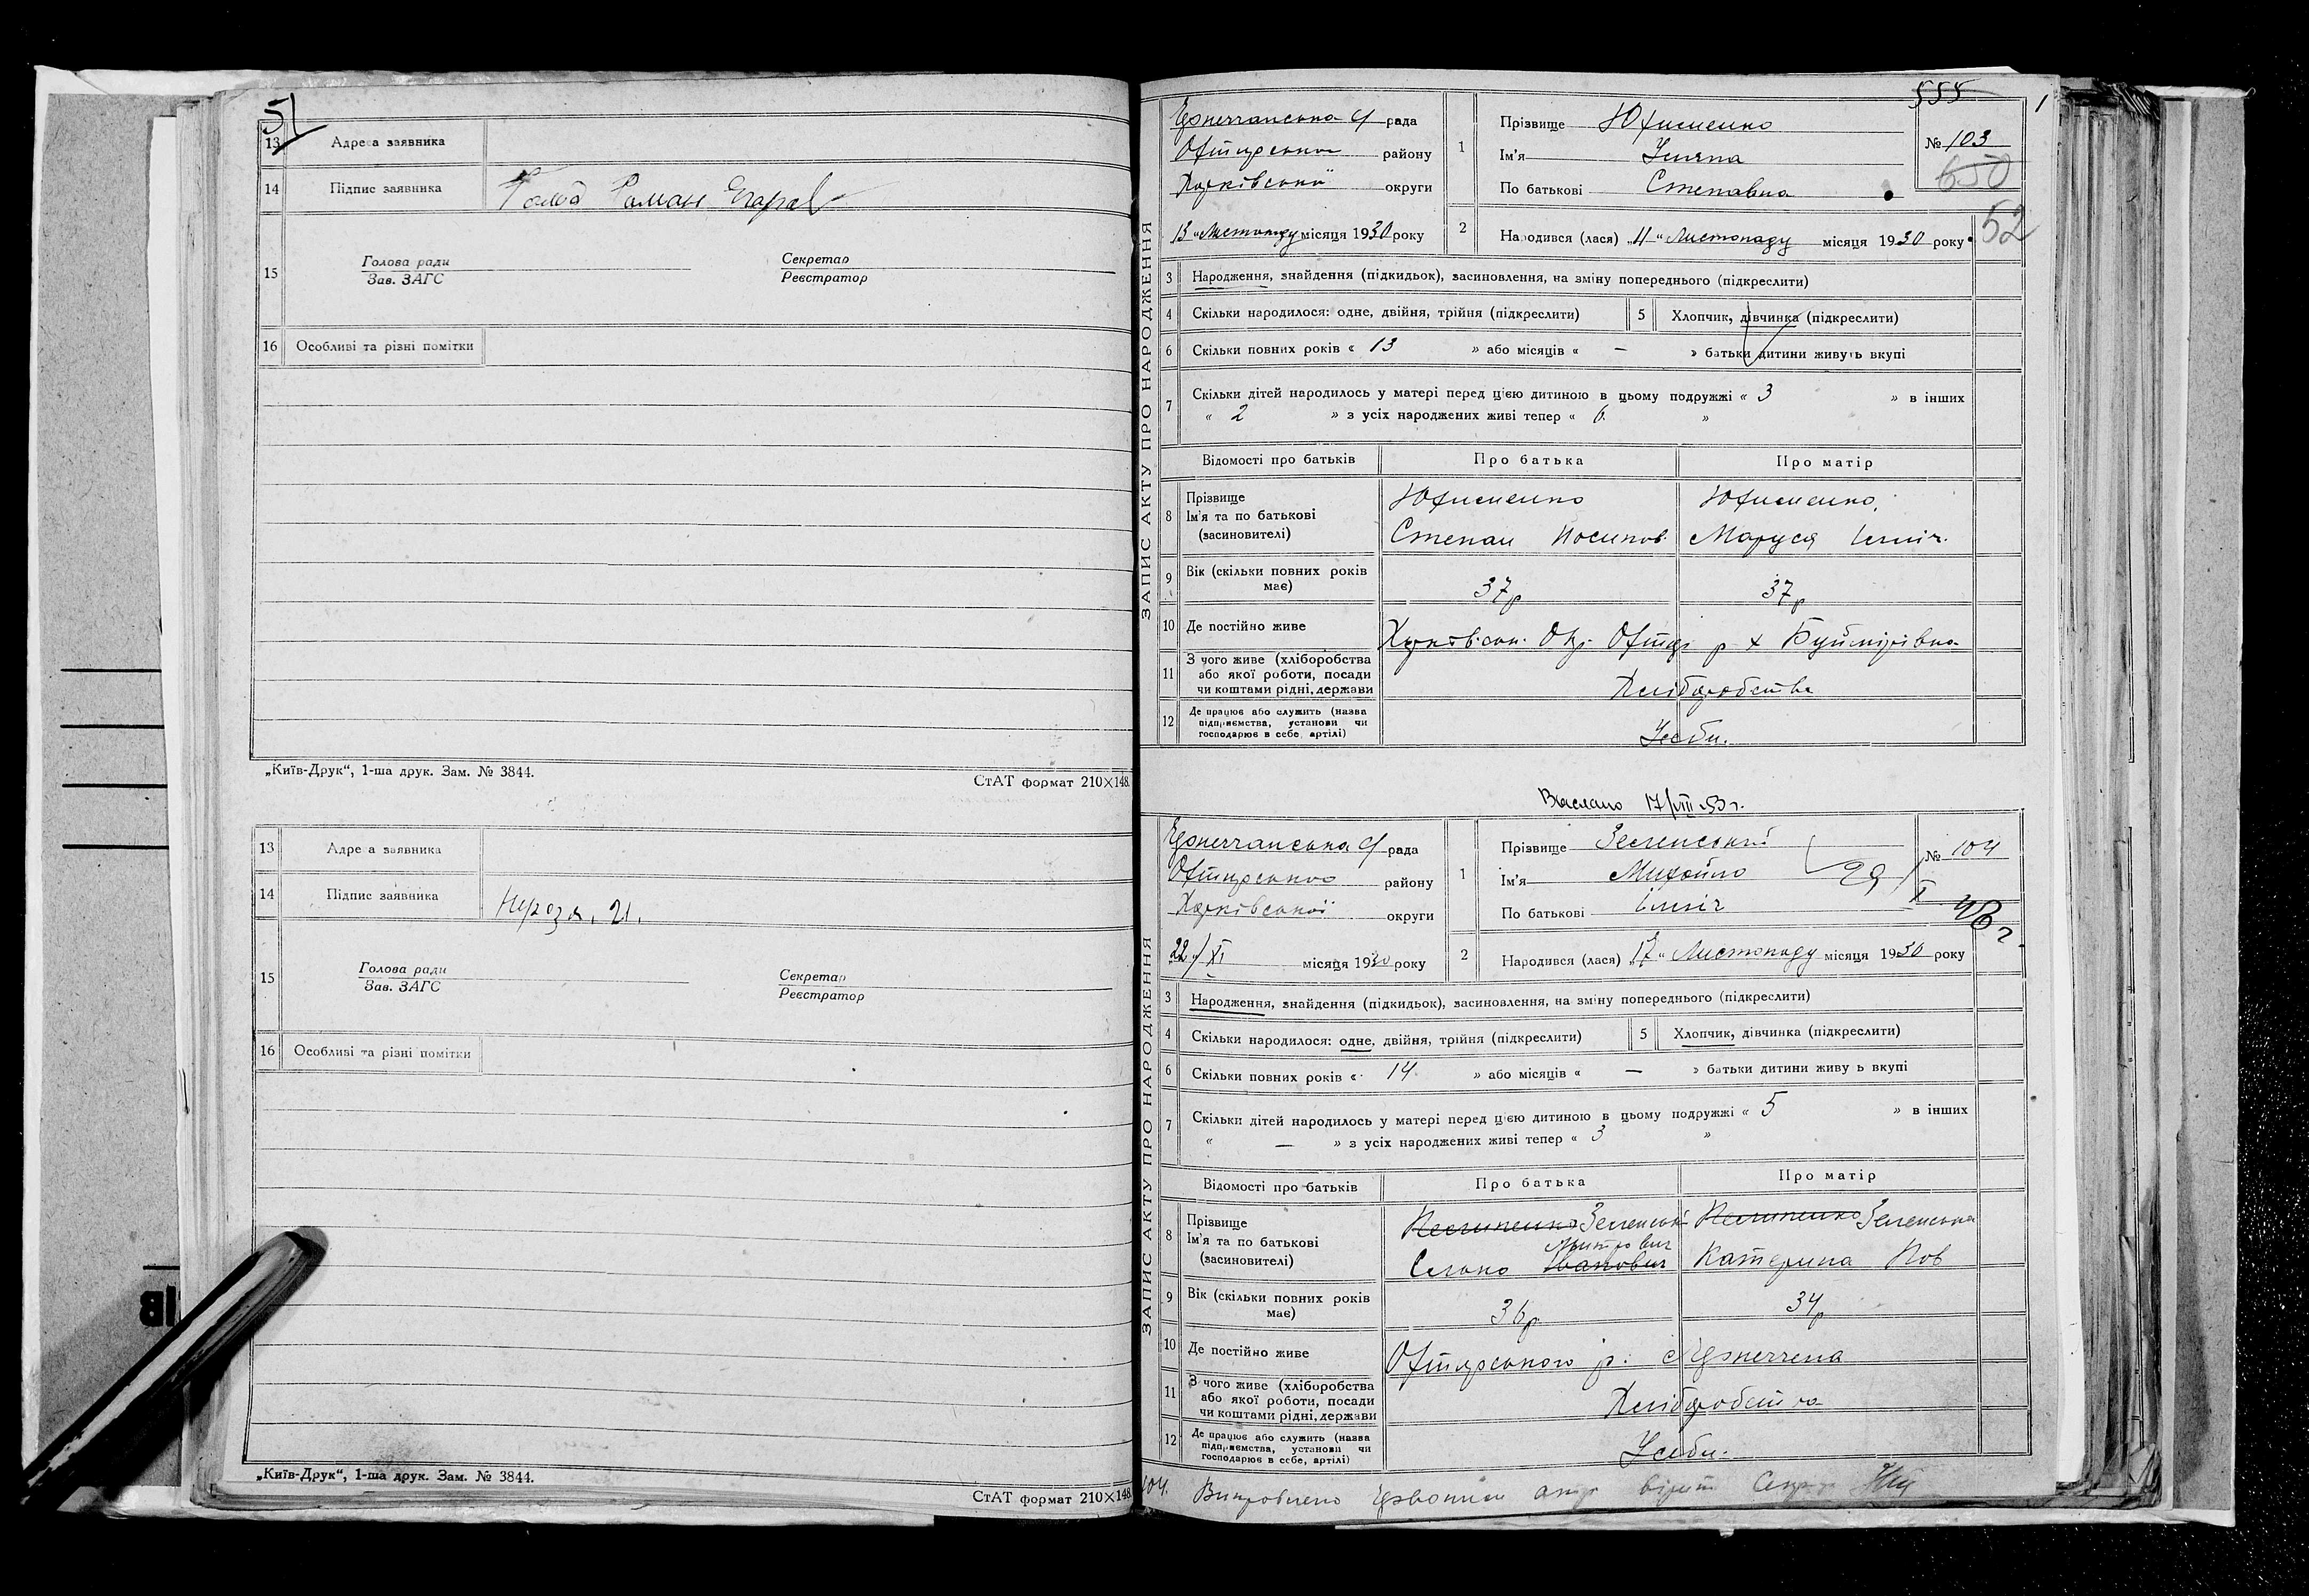 51
13 Адреса заявника
14 Підпис заявника Роман
15 Голова ради Секретар
Зав. ЗАГС Реєстратор
16 Особливі та різні помітки
„Київ-Друк“, 1-ша друк. Зам. № 3844. СтАТ формат 210×148.
13 Адреса заявника
14 Підпис заявника
15 Голова ради Секретар
Зав. ЗАГС Реєстратор
16 Особливі та різні помітки
„Київ-Друк“, 1-ша друк. Зам. № 3844. СтАТ формат 210×148.
555
1
ЗАПИС АКТУ ПРО НАРОДЖЕННЯ
рада
Охтирського району
Харківської округи
13 „Листопаду місяця 1930 року
1 Прізвище Юхименко
Ім'я Уляна
По батькові Степавна
№ 103
650
52
2 Народився (лася) „11“ Листопаду місяця 1930 року
3 Народження, знайдення (підкидьок), засиновлення, на зміну попереднього (підкреслити)
4 Скільки народилося: одне, двійня, трійня (підкреслити) 5 Хлопчик, дівчинка (підкреслити)
6 Скільки повних років « 13 » або місяців « — » батьки дитини живуть вкупі
7 Скільки дітей народилось у матері перед цією дитиною в цьому подружжі « 3 » в інших
« 2 » з усіх народжених живі тепер « 6 »
Відомості про батьків Про батька Про матір
8 Прізвище Юхименко Юхименко
Ім'я та по батькові
(засиновителі) Степан Йосипов. Маруся Ілліч.
9 Вік (скільки повних років має) 37р 37р
10 Де постійно живе Харківськ. Окр. Охтир р х Буймирівка
11 З чого живе (хліборобства
або якої роботи, посади
чи коштами рідні, держави Хліборобства
12 Де працює або служить (назва
підприємства, установи чи
господарює в себе, артілі) Усеби.
Выслано 17/VIII 53 г.
ЗАПИС АКТУ ПРО НАРОДЖЕННЯ
рада
Охтирського району
Харківської округи
„22“/XI місяця 1930 року
1 Прізвище Зеленський
Ім'я Михайло
По батькові Ілліч
№ 104
29/X 48 г.
2 Народився (лася) „17“ Листопаду місяця 1930 року
3 Народження, знайдення (підкидьок), засиновлення, на зміну попереднього (підкреслити)
4 Скільки народилося: одне, двійня, трійня (підкреслити) 5 Хлопчик, дівчинка (підкреслити)
6 Скільки повних років « 14 » або місяців « — » батьки дитини живу ь вкупі
7 Скільки дітей народилось у матері перед цією дитиною в цьому подружжі « 5 » в інших
« — » з усіх народжених живі тепер « 3 »
Відомості про батьків Про батька Про матір
8 Прізвище Зеленськ Зеленська
Ім'я та по батькові Митрович
(засиновителі) Іванович Катерина
9 Вік (скільки повних років має) 36р 34р
10 Де постійно живе Охтирського р. с
11 З чого живе (хліборобства
або якої роботи, посади
чи коштами рідні, держави Хліборобства
12 Де працює або служить (назва
підприємства, установи чи
господарює в себе, артілі) Усеби.
104.